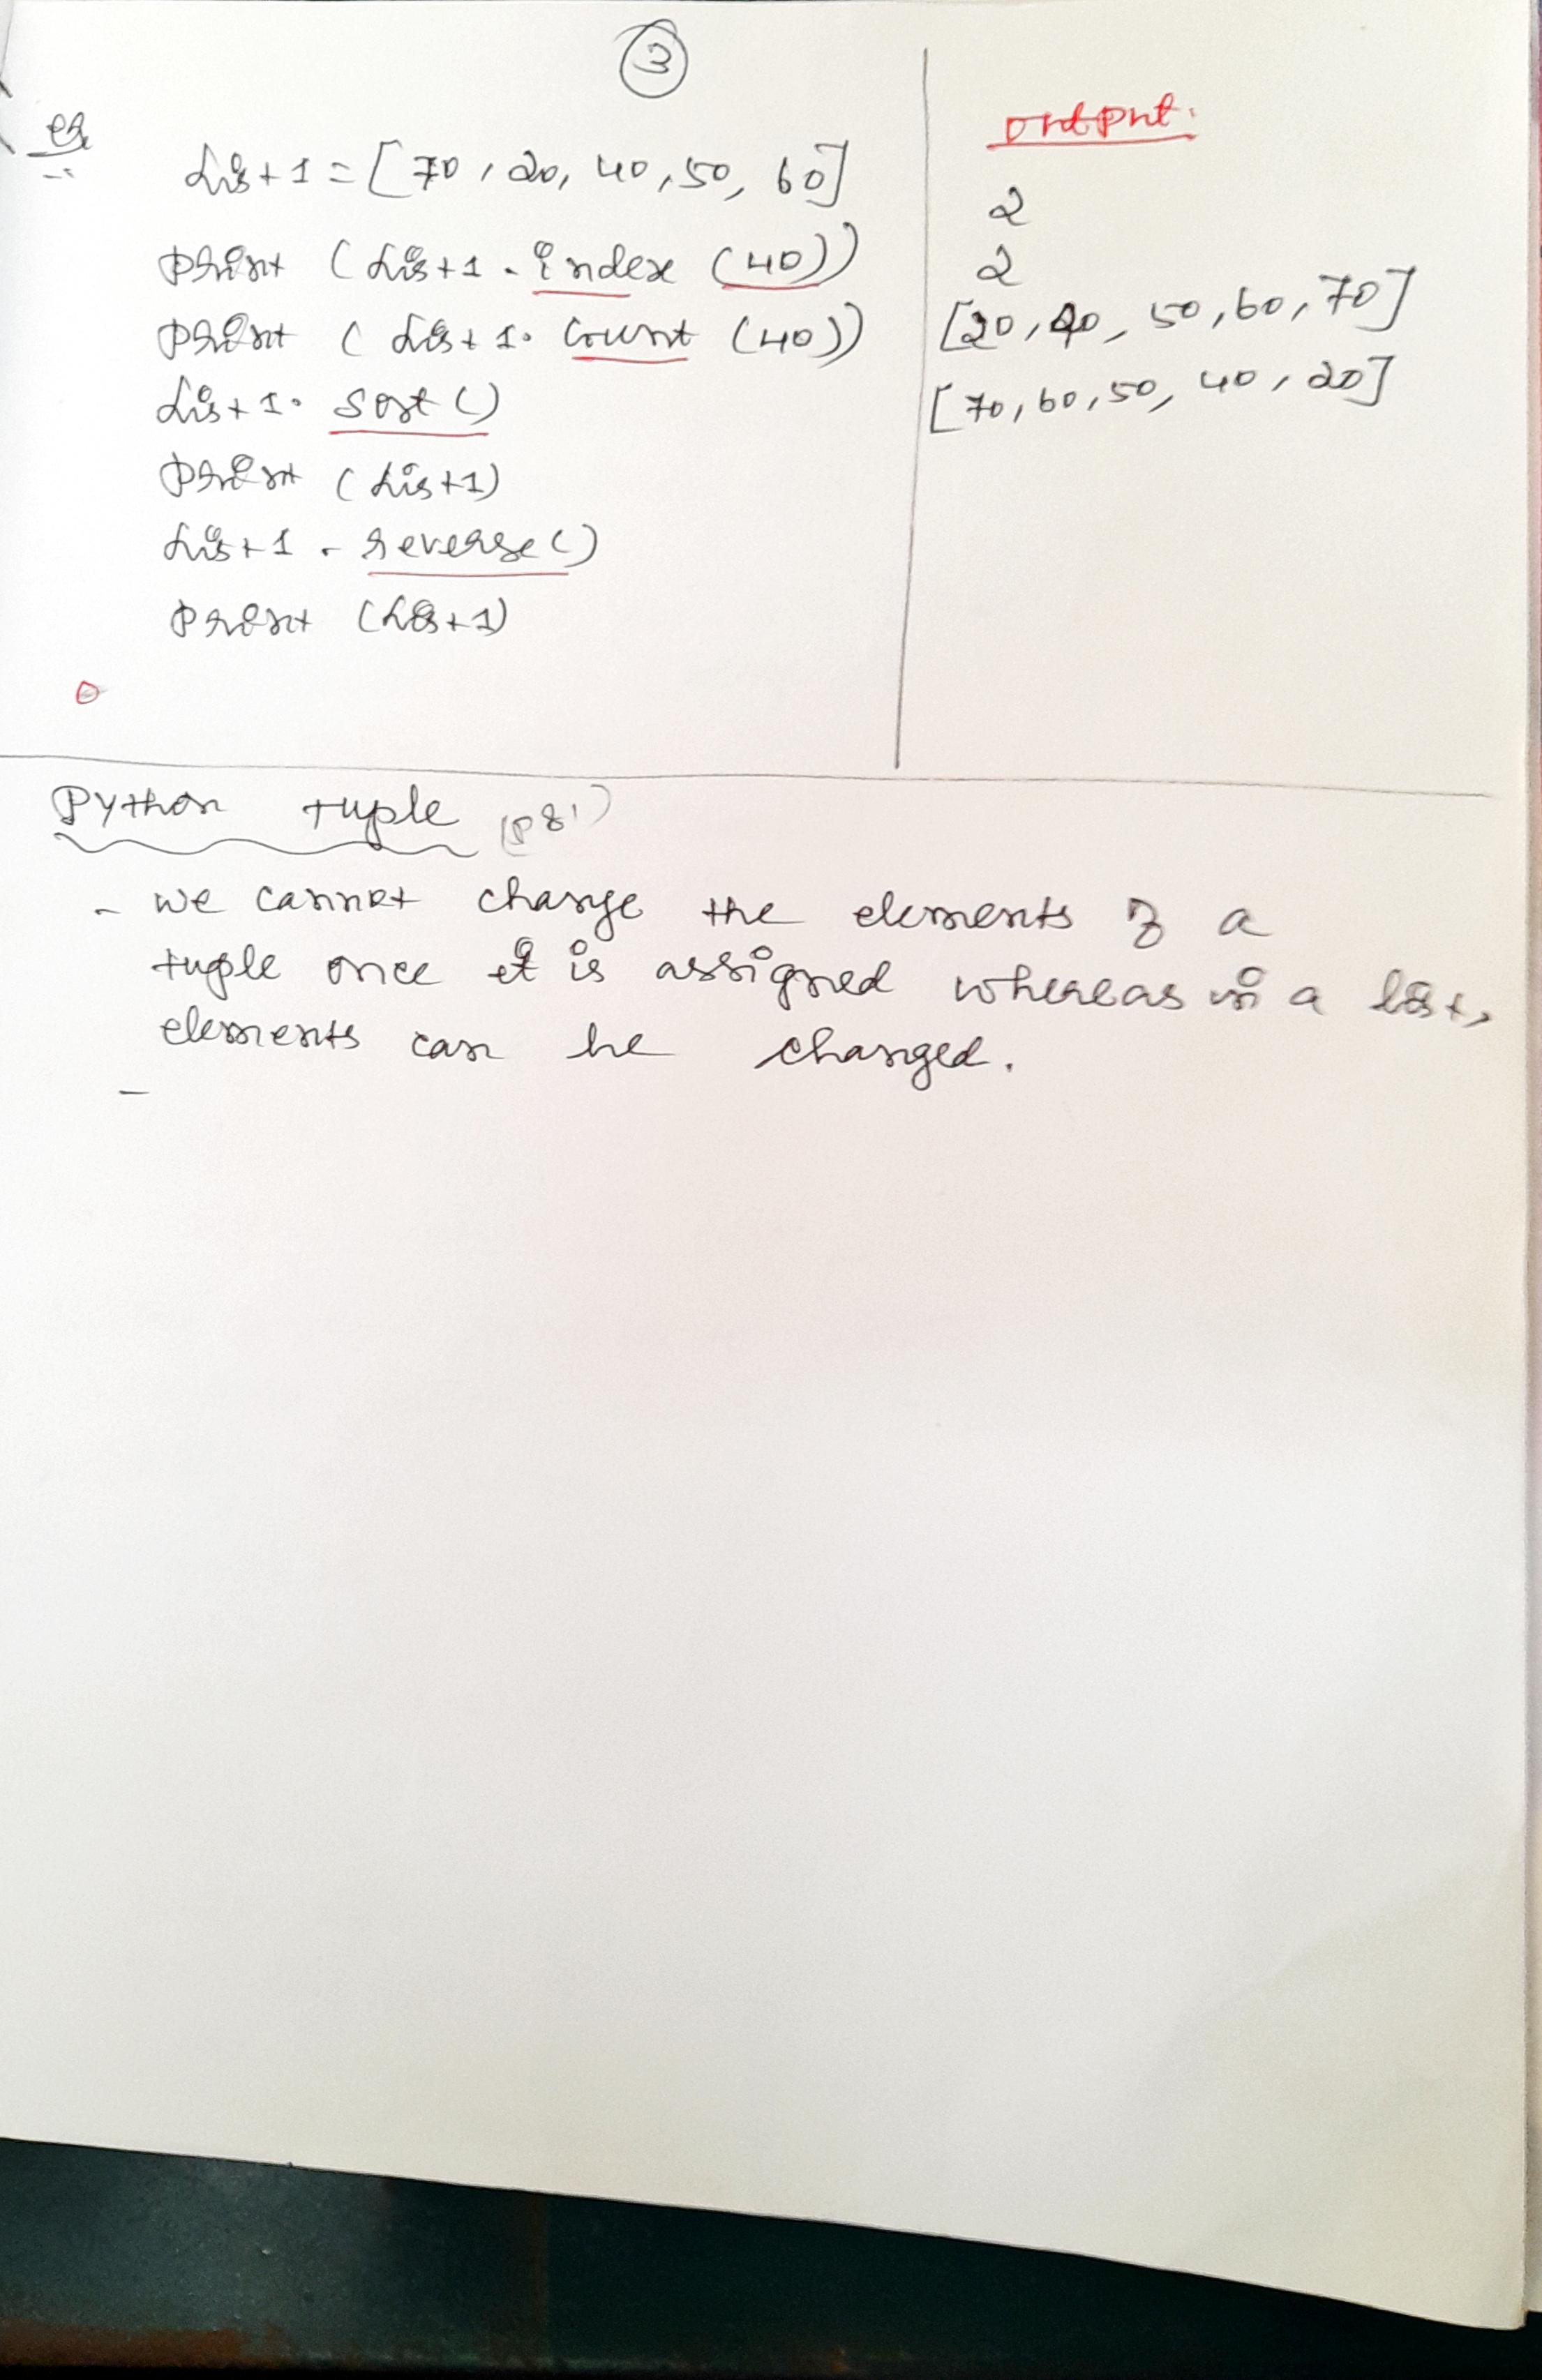 3
eg
List1 = [70, 20, 40, 50, 60]
print (List1. index (40))
print (List1. count (40))
List1. sort ()
print (List1)
List1. reverse()
print (List1)
output.
2
2
[20, 40, 50, 60, 70]
[70, 60, 50, 40, 20]
Python tuple
- we cannot change the elements of a
tuple once it is assigned whereas in a list,
elements can be changed.
-